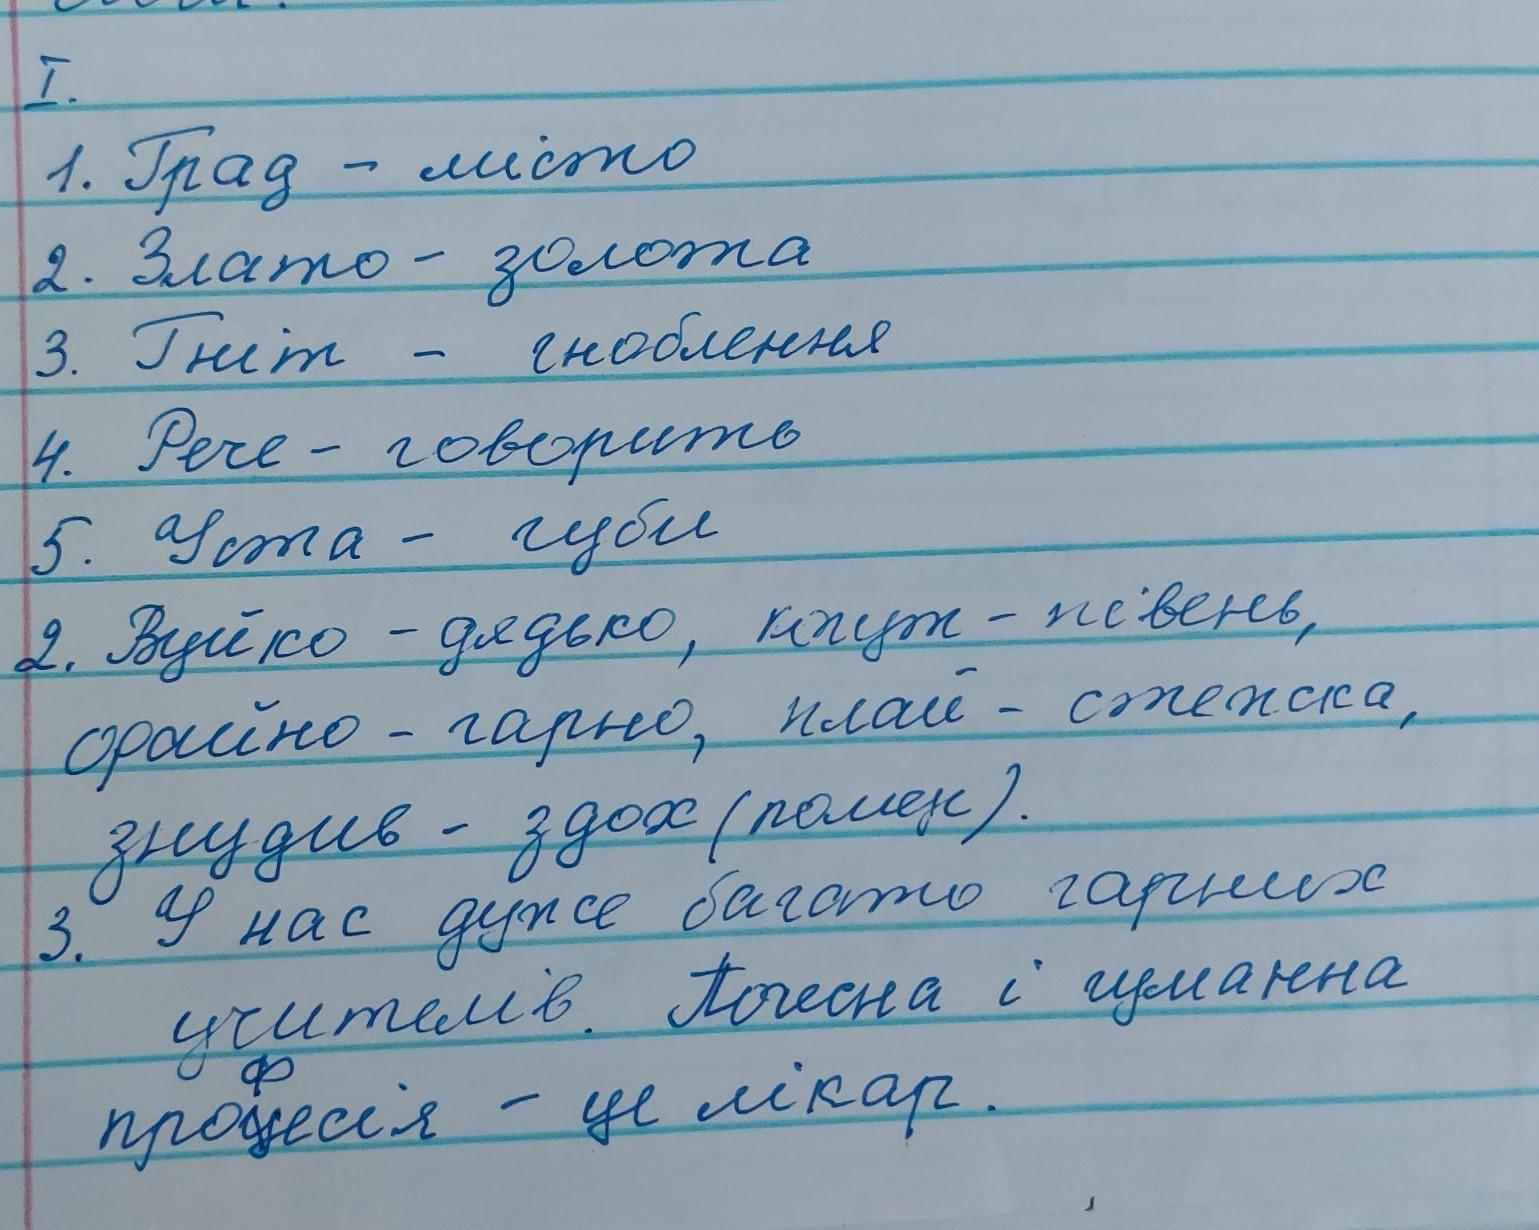 I.
1. Град - місто
2. Злато - золота
3. Гніт - гноблення
4. Рече - говорить
5. Уста - губи
2. Вуйко - дядько, - півень,
файно - гарно, плай - стежка,
знудив - здох (помер).
3. У нас дуже багато гарних
учителів. Почесна і гуманна
професія - це лікар.